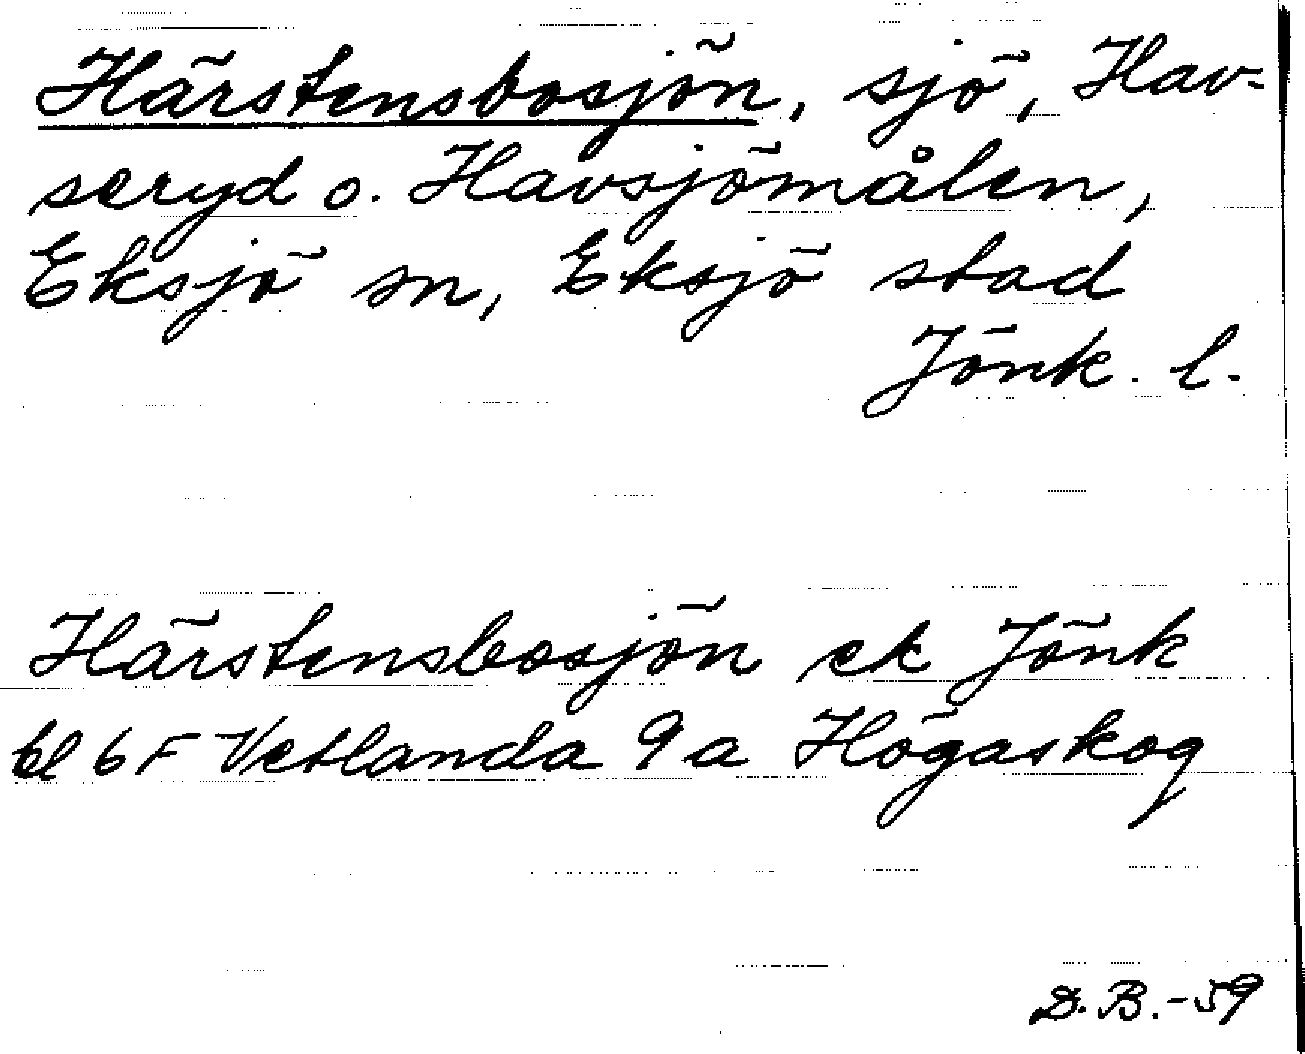 Härstensbosjön, sjö, Hav-
seryd o. Havsjömålen,
Eksjö sn, Eksjö stad
Jönk. l.
Härstensbosjön ek Jönk
bl 6F Vetlanda 9a Högaskog
D.B.-59